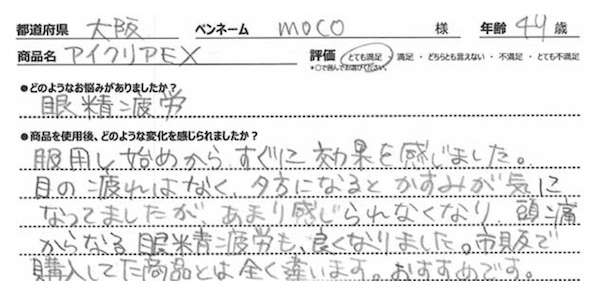 都道府県 大阪 ペンネーム moco 様 年齢 44 歳
商品名 アイクリアEX 評価 とても満足 ・ 満足 ・ どちらとも言えない ・ 不満足 ・ とても不満足
*○で選んでお選びください。
●どのようなお悩みがありましたか?
眼精疲労
●商品を使用後、どのような変化を感じられましたか?
服用し始めから、すぐに効果を感じました。
目の疲れはなく、夕方になるとかすみが気に
なってましたが、あまり感じられなくなり、頭痛
からなる眼精疲労も、良くなりました。市販で
購入してた商品とは全く違います。おすすめです。